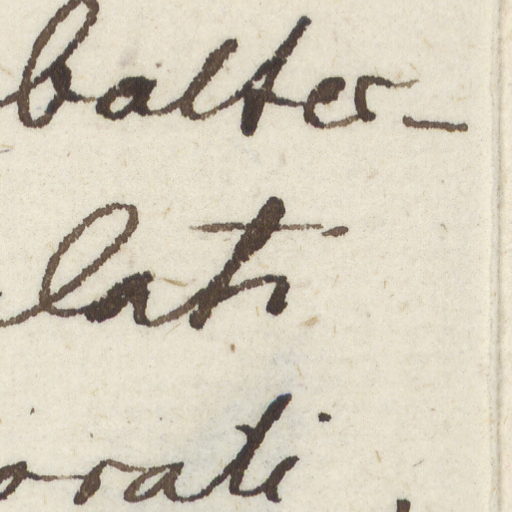 balter-
lati
orati.